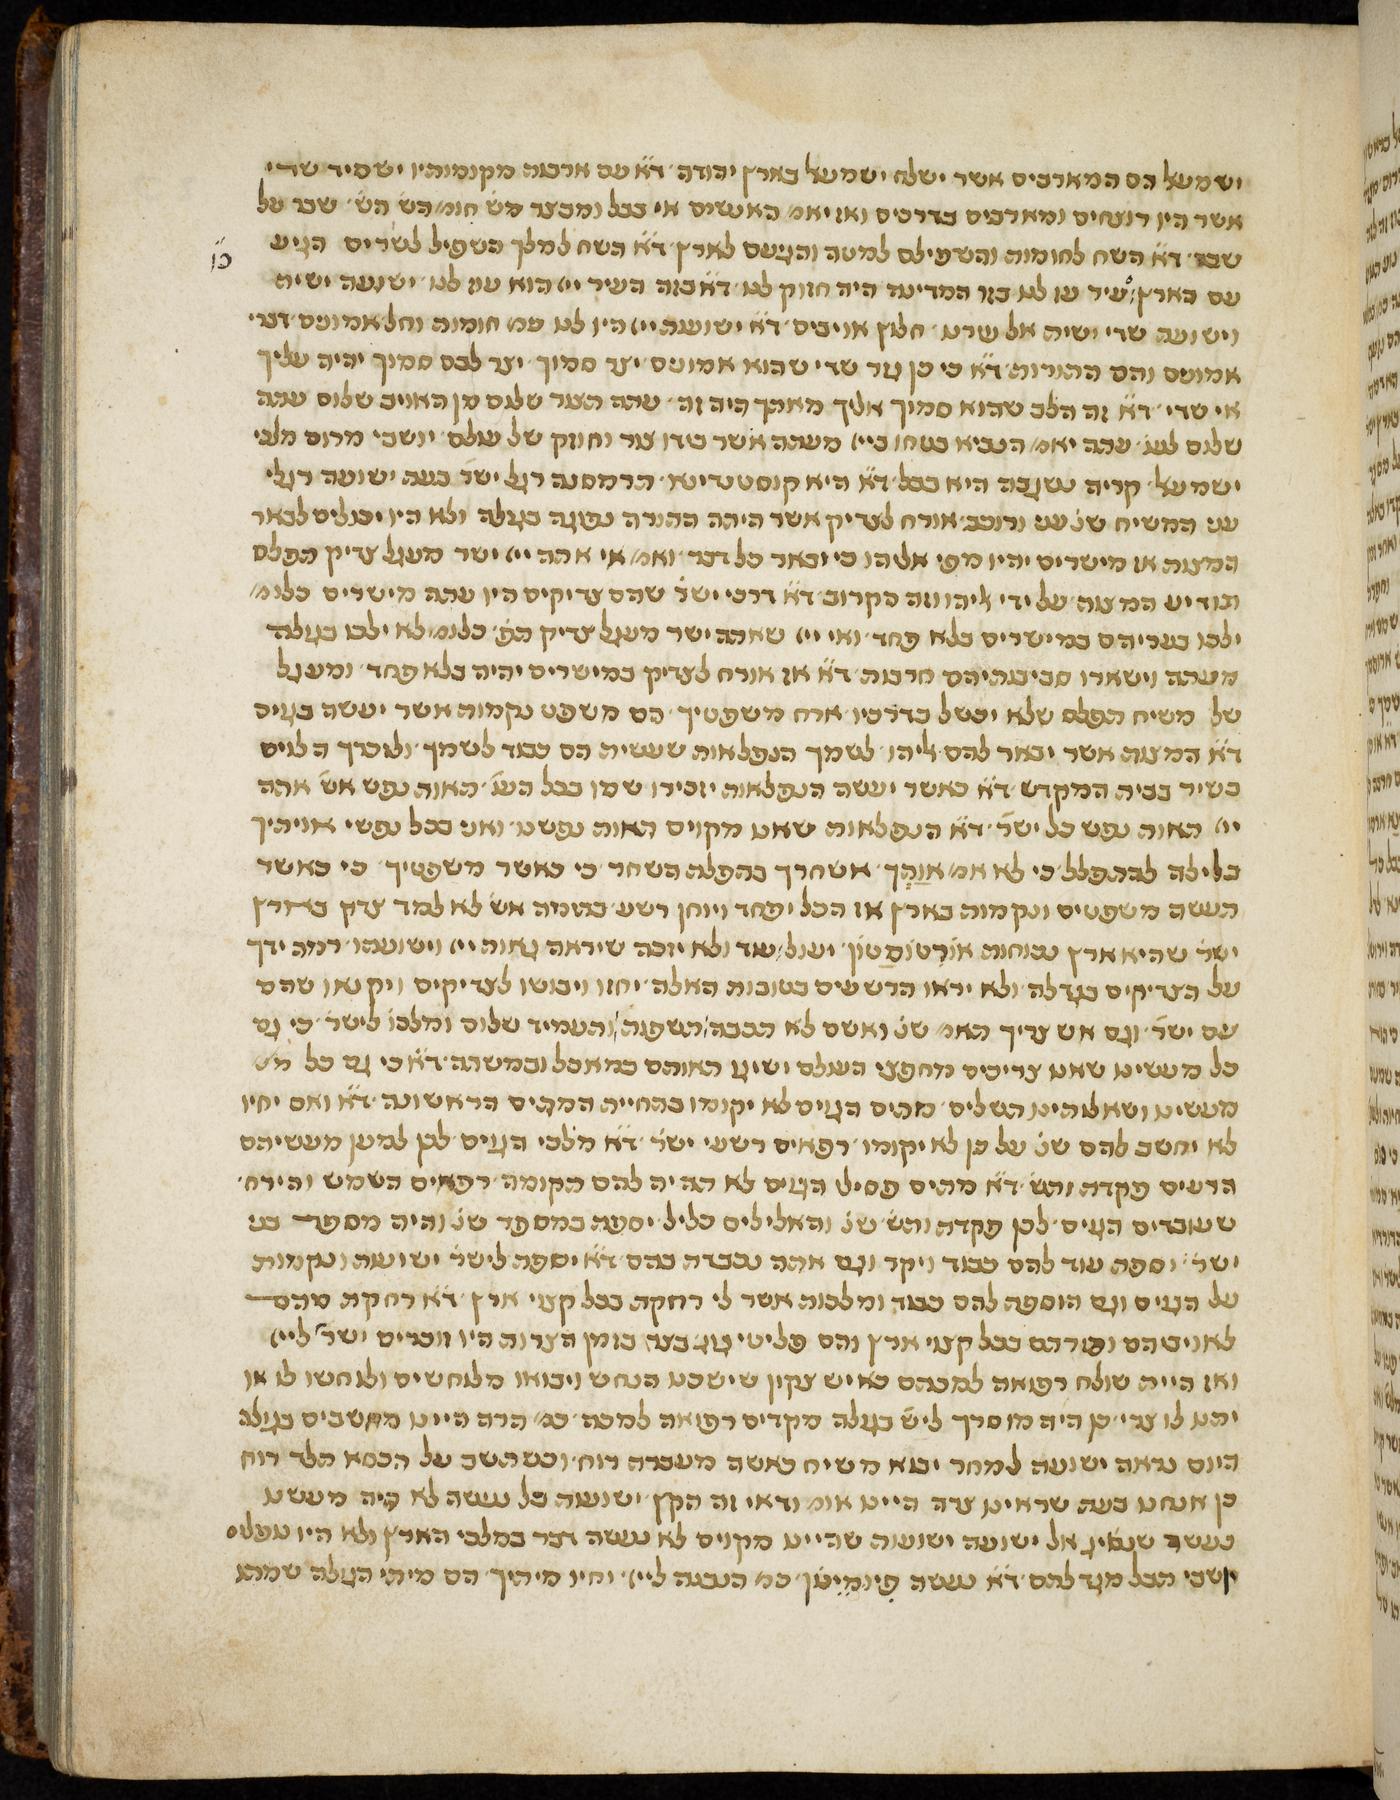 ישמעל הם המארבים אשר ישלח ישמעל בארץ יהודה דא עם ארבות מקומותיו ישמיד שדי
אשר היו רוצחים ומארבים בדרכים ואז יאמ׳ האנשים אי בבל ומבצר מש׳ חומ׳ הש הש׳ שבר על
שבר דא השח לחומות והשפילם למטה והגיעם לארץ דא השח למלך השפיל לשרים הגיע
כו
עם בארץ עיר עז לנו בזו המדינה היה חזוק לנו דא בזה העיר ייי הוא עוז לנו ישועה ישית
וישועה שדי ישית אל ערינו חלוץ אויבים דא ישועת ייי היו לנו כמ׳ חומות וחל אמונים דברי
אמונים והם התורות דא כי כן נצר שדי שהוא אמונים יצר סמוך יצר לבם סמוך יהיה עליך
אי שדי דא זה הלב שהוא סמוך אליך מאתך היה זה עתה תצר שלום מן האויב שלום עתה
שלום לנו עתה יאמ׳ הנביא בטחו בייי מעתה אשר בידו צור וחוזק של עולם יושבי מרום מלכי
ישמעל קריה נשגבה היא בבל דא היא קוסטנטינא תרמסנה רגל ישר בעת ישועה רגלי
עני המשיח שנ׳ עני ורוכב אורח לצדיק אשר היתה התורה נעוגה בגולה ולא היו יכולים לבאר
המצות אז מישרים יהיו מפי אליהו כי יבאר כל דבר ואמ׳ אי אתה ייי ישר מעגל צדיק תפלס
ותודיע המצוה על ידי ליהו וזה הקרוב דא דרכי ישר שהם צדיקים היו עתה מישרים כלומ׳
ילכו בעריהם במישרים בלא פחד ואי ייי שאתה ישר מעגל צדיק תפ׳ כלומ׳ לא ילכו בגולה
מעתה וישארו סביבותיהם חרבות דא אז אורח לצדיק במישרים יהיה בלא פחד ומעגל
של משיח תפלס שלא יכשל בדרכיו ארח משפטיך הם משפט נקמות אשר יעשה בגוים
דא המצות אשר יבאר להם ליהו לשמך הנפלאות שעשית הם כבוד לשמך ולזכרך הלוים
בשיר בבית המקדש דא כאשר יעשה הנפלאות יזכירו שמו בכל העו׳ תאות נפש אש אתה
ייי תאות נפש כל ישר דא הנפלאות שאנו מקוים תאות נפשנו ואני בכל נפשי אויתיך
בלילה להתפלל כי לא אמ׳ אוהך אשחרך בתפלת השחר כי כאשר משפטיך כי כאשר
תעשה משפטים ונקמות בארץ אז הכל יפחד ויוחן רשע בהמה אש לא למד צדק בארץ
ישר שהיא ארץ נכוחות אורטוסטון יעול עוד ולא יזכה שיראה גאות ייי וישועתו רמה ידך
על הצדיקים בגדלה ולא יראו הרשעים בטובות האלה יחזו ויבושו לצדיקים ויקנאו שהם
עם ישר וגם אש צריך האמ׳ שנ׳ ואשם לא תכבה תשפות והעמיד שלום ומלכו לישר כי גם
כל מעשינו שאנו צריכים מחפצי העולם ישיגו תאותם במאכל ובמשתה דא כי גם כל מש׳
מעשינו ושאלותינו תשלים מתים הגוים לא יקומו בתחיית המתים הראשונה דא ואם יחיו
לא יחשב להם שנ׳ על כן לא יקומו רפאים רשעי ישר דא מלכי הגוים לכן למען מעשיהם
הרעים פקדת והש׳ דא מתים פסילי הגוים לא תהיה להם תקומה רפאים השמש והירח
שעובדים הגוים לכן פקדת והש׳ שנ׳ והאלילים כליל יספת במספר שנ׳ והיה מספר בני
ישר יספת עוד להם כבוד ויקר וגם אתה נכבדת בהם דא יספת לישר ישועות ונקמות
על הגוים וגם הוספת להם כבוד ומלכות אשר לי רחקת בכל קצוי ארץ דא רחקת מהם
לאויביהם ופזרתם בכל קצוי ארץ והם פליטי גוג בצר בזמן הצרות היו זוכרים ישר לייי
ואז היית שולח רפואה למכתם כאיש זקון שישכנו הנחש ויבואו מלוחשים ולוחשו לו או
יתנו לו צרי כן היה מוסרך ליש׳ בגולה מקדים רפואה למכה כמ׳ הרה היינו מחשבים בגולה
היום נראה ישועה למחר יבוא משיח כאשה מעברת רוח וכשתשב על הכסא תלד רוח
כן אנחנו בעת שראינו צרה היינו אומ׳ ודאי זה הקץ ישועות בל נעשה לא היה מעשנו
נעשה שנאין אל ישועה ישועות שהיינו מקוים לא נעשה דבר במלכי הארץ ולא היו נופלים
יושבי תבל מנגד להם דא נעשה פינומיטון כמ׳ הנבנה לייי יחיו מיתיך הם מיתי הגולה שמתו